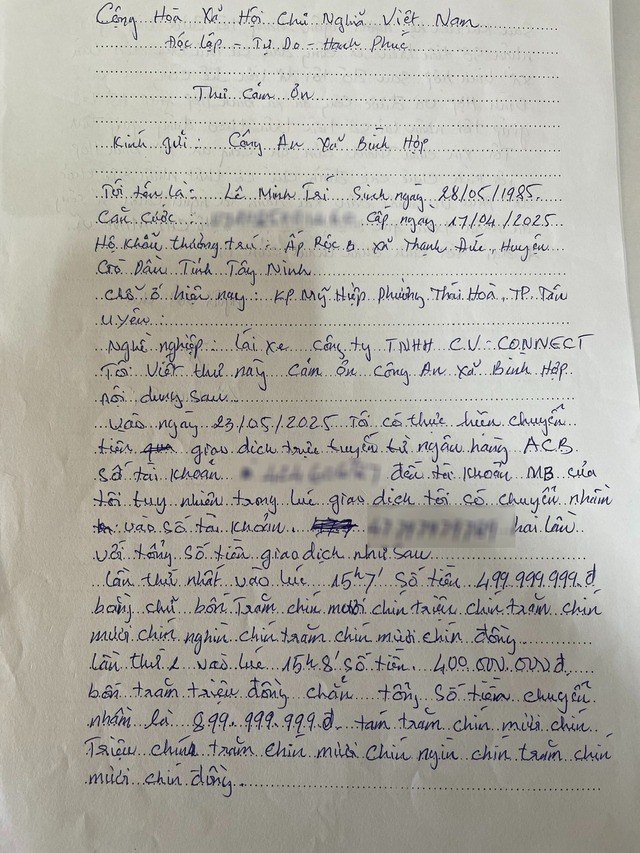 Cộng Hoà Xã Hội Chủ Nghĩa Việt Nam
Độc lập - Tự Do - Hạnh Phúc
Thư Cảm Ơn
Kính gửi : Công An Xã Bình Hợp
Tôi tên là : Lê Minh Trí Sinh ngày 28/05/1985
Căn cước : Cấp ngày 17/04/2025
Hộ khẩu thường trú : Ấp Rộc B xã Thạnh Đức, Huyện
Gò Dầu Tỉnh Tây Ninh
Chỗ ở hiện nay : KP Mỹ Hiệp Phường Thái Hoà, TP. Tân
Uyên :
Nghề nghiệp : lái xe Công ty TNHH C.V. CONNECT
Tôi Viết thư này Cảm ơn Công An xã Bình Hợp
nội dung sau
vào ngày 23/05/2025 Tôi có thực hiện chuyển
tiền giao dịch trực tuyến từ ngân hàng ACB
Số tài khoản đến tài khoản MB của
tôi tuy nhiên trong lúc giao dịch tôi có chuyển nhầm
vào số tài khoản hai lần
với tổng số tiền giao dịch như sau
lần thứ nhất vào lúc 15h7' Số tiền 499.999.999.đ
bằng chữ bốn Trăm chín mươi chín triệu chín trăm chín
mươi chín nghìn chín trăm chín mươi chín đồng
lần thứ 2 vào lúc 15h8' số tiền. 400.000.000đ
bốn trăm triệu đồng chẵn tổng số tiền chuyển
nhầm là 899.999.999.đ tám trăm chín mươi chín
Triệu chín trăm chín mươi chín ngìn chín trăm chín
mươi chín đồng